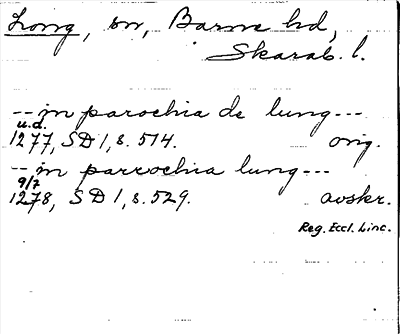 Ljong, sn, Barne hd,
Skarab. l.
-- in parochia de liung ---
u.d.
1277, SD 1, s. 514. orig.
-- in parrochia liung ---
9/7
1278, SD 1, s. 529. avskr.
Reg. Eccl. Linc.